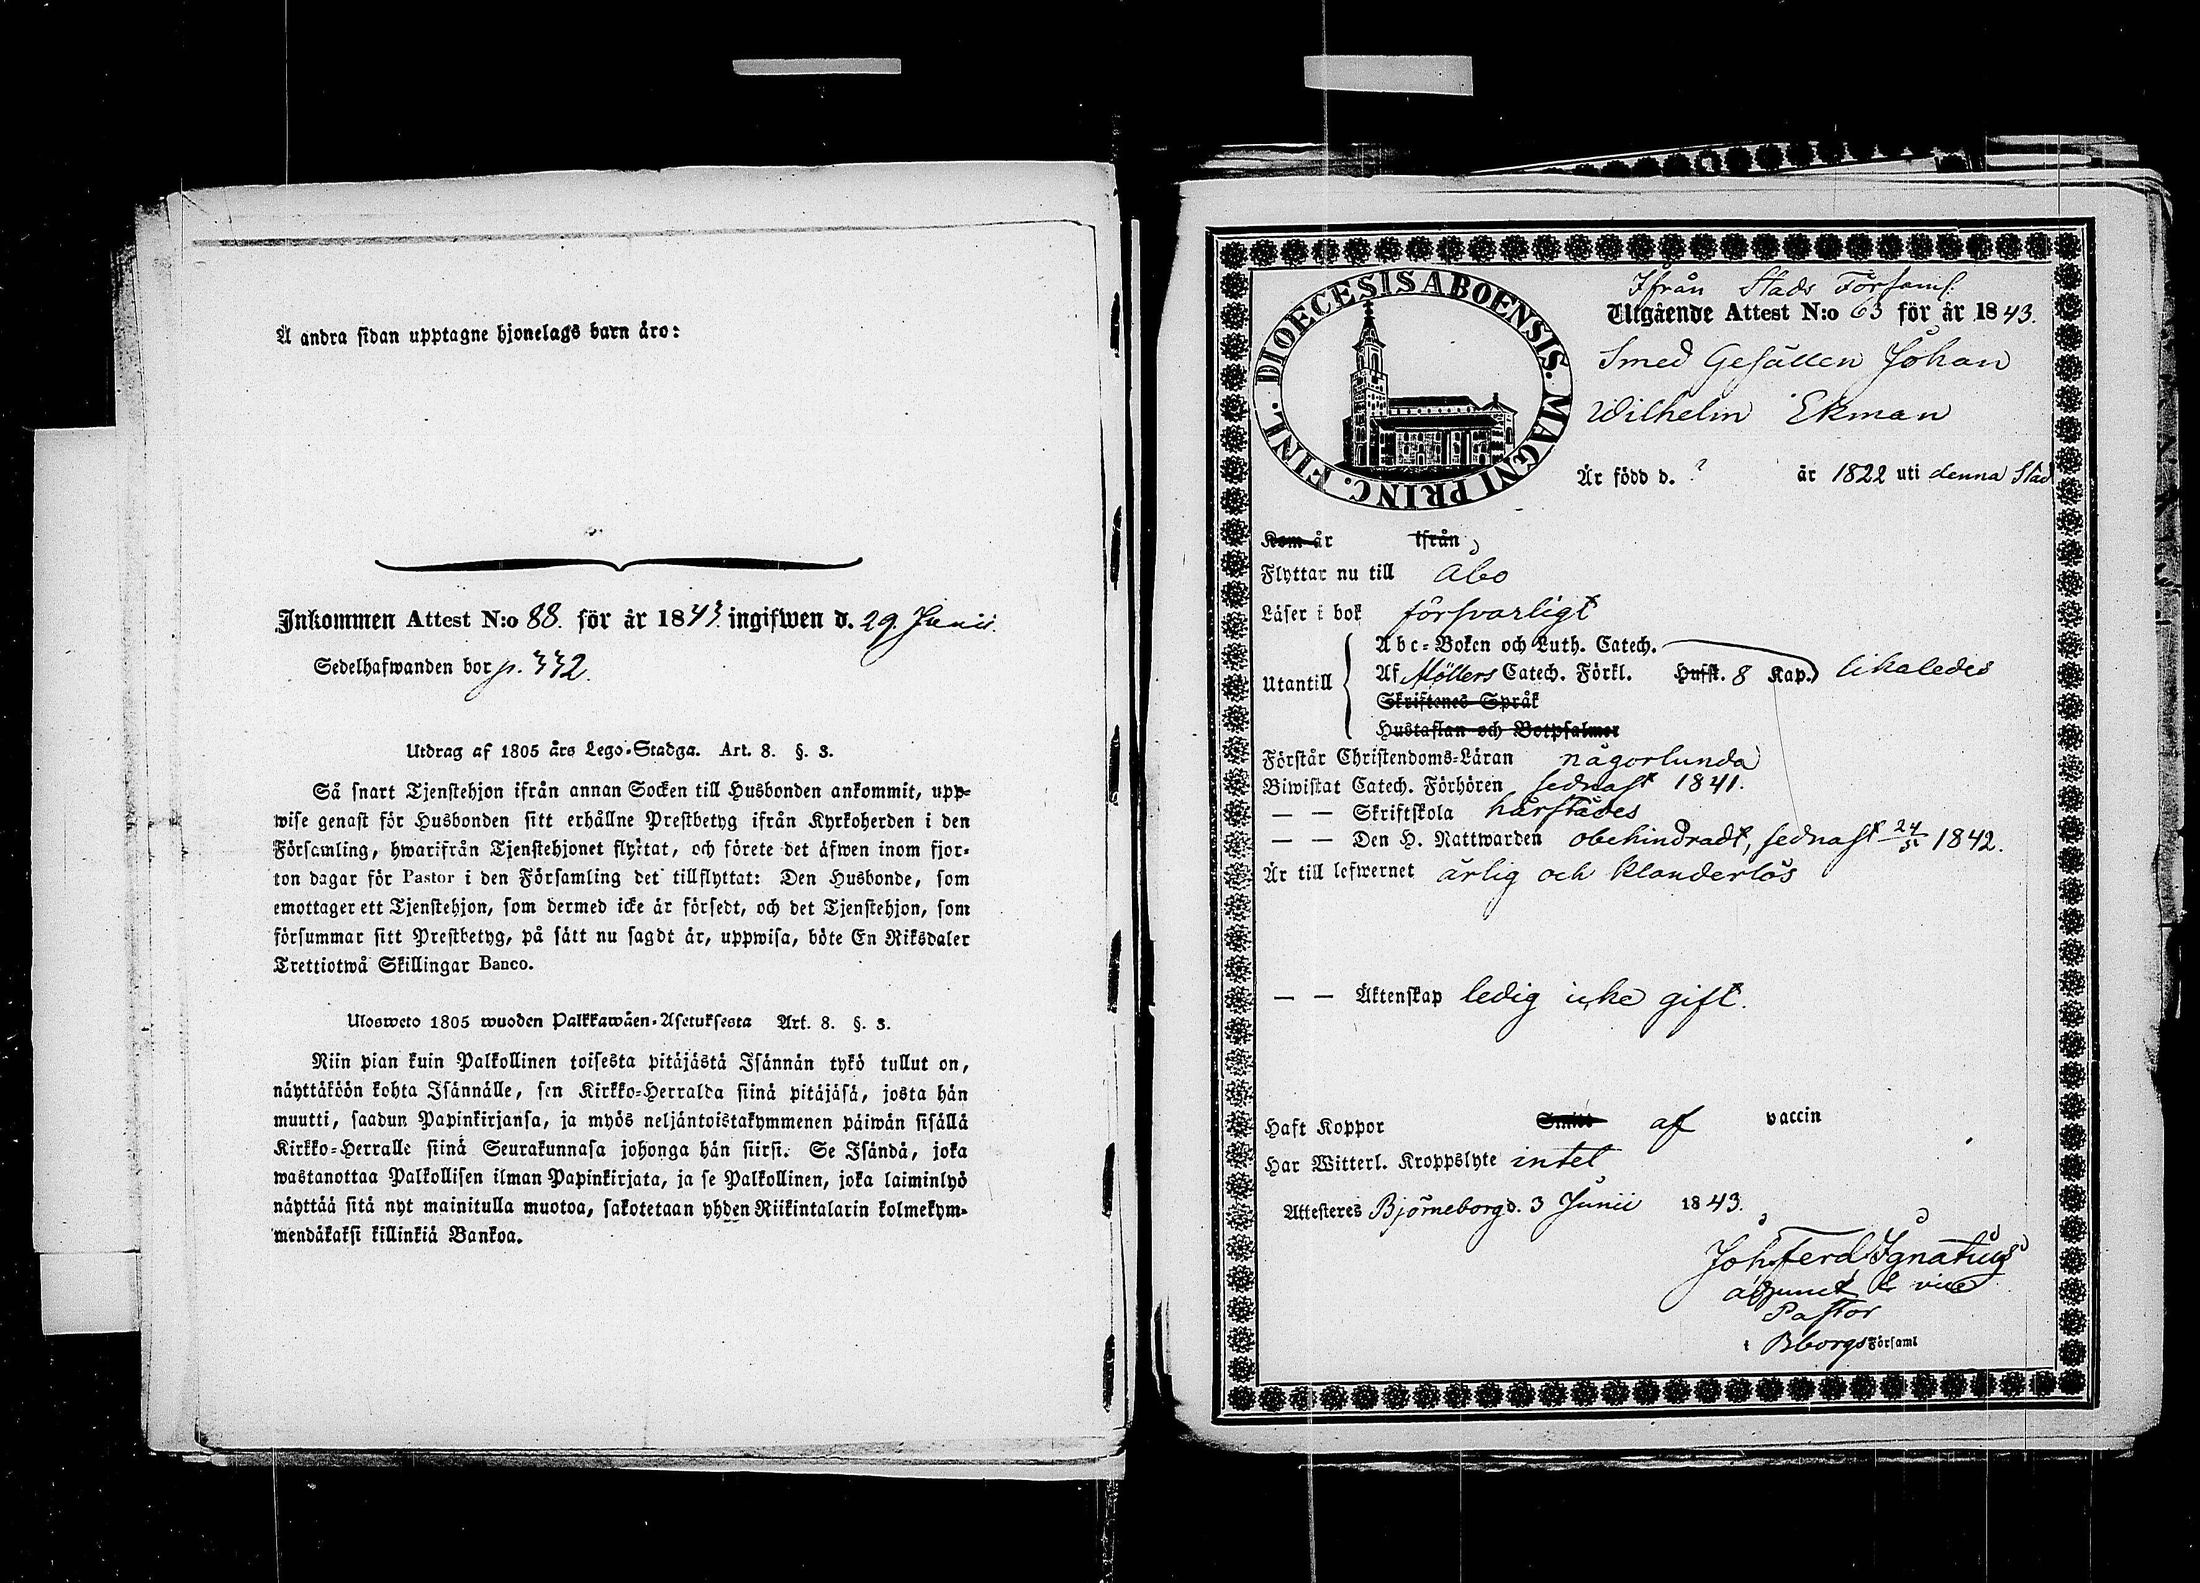 Å andra sidan upptagne hjonelags barn äro:
Inkommen Attest N:o 88. för år 1843. ingifwen d. 29. Junii.
Sedelhafwanden bor p. 332.
Utdrag af 1805 års Lego-Stadga. Art. 8. §. 3.
Så snart Tjenstehjon ifrån annan Socken till Husbonden ankommit, upp-
wise genast för Husbonden sitt erhållne Prestbetyg ifrån Kyrkoherden i den
Församling, hwarifrån Tjenstehjonet flyttat, och förete det äfwen inom fjor-
ton dagar för Pastor i den Församling det tillflyttat: Den Husbonde, som
emottager ett Tjenstehjon, som dermed icke är försedt, och det Tjenstehjon, som
försummar sitt Prestbetyg, på sätt nu sagdt är, uppwisa, böte En Riksdaler
Trettiotwå Skillingar Banco.
Ulosweto 1805 wuoden Palkkawäen-Asetuksesta Art. 8. §. 3.
Niin pian kuin Palkollinen toisesta pitäjästä Isännän tykö tullut on,
näyttäköön kohta Isännälle, sen Kirkko-Herralda siinä pitäjäsä, josta hän
muutti, saadun Papinkirjansa, ja myös neljäntoistakymmenen päiwän sisällä
Kirkko-Herralle siinä Seurakunnasa johonga hän siirsi. Se Isändä, joka
wastanottaa Palkollisen ilman Papinkirjata, ja se Palkollinen, joka laiminlyö
näyttää sitä nyt mainitulla muotoa, sakotetaan yhden Riikintalarin kolmekym-
mendäkaksi killinkiä Bankoa.
DIOECESIS ABOENSIS. MAGNI PRINC. FINL.
Ifrån Stads Församl.
Utgående Attest N:o 63 för år 1843.
Smed Gesällen Johan
Wilhelm Ekman
Är född d. ? år 1822 uti denna Stad
Kom år ifrån
Flyttar nu till Åbo
Läser i bok försvarligt
Abc-Boken och Luth. Catech.
Utantill Af Möllers Catech. Förkl. Hufst. 8 Kap. likaledes
Skriftenes Språk
Hustaflan och Botpsalmer
Förstår Christendoms-Läran någorlunda
Biwistat Catech. Förhören sednast 1841.
— — Skriftskola härstädes
— — Den H. Nattwarden obehindradt, sednast 24/5 1842.
Är till lefwernet ärlig och klanderlös
— — Äktenskap ledig icke gift.
Haft Koppor af vaccin
Har Witterl. Kroppslyte intet
Attesteres Björneborg d. 3 Junii 1843.
Joh. Ferd. Ignatius
adjunct & vice
Pastor
i Bborgs Församl